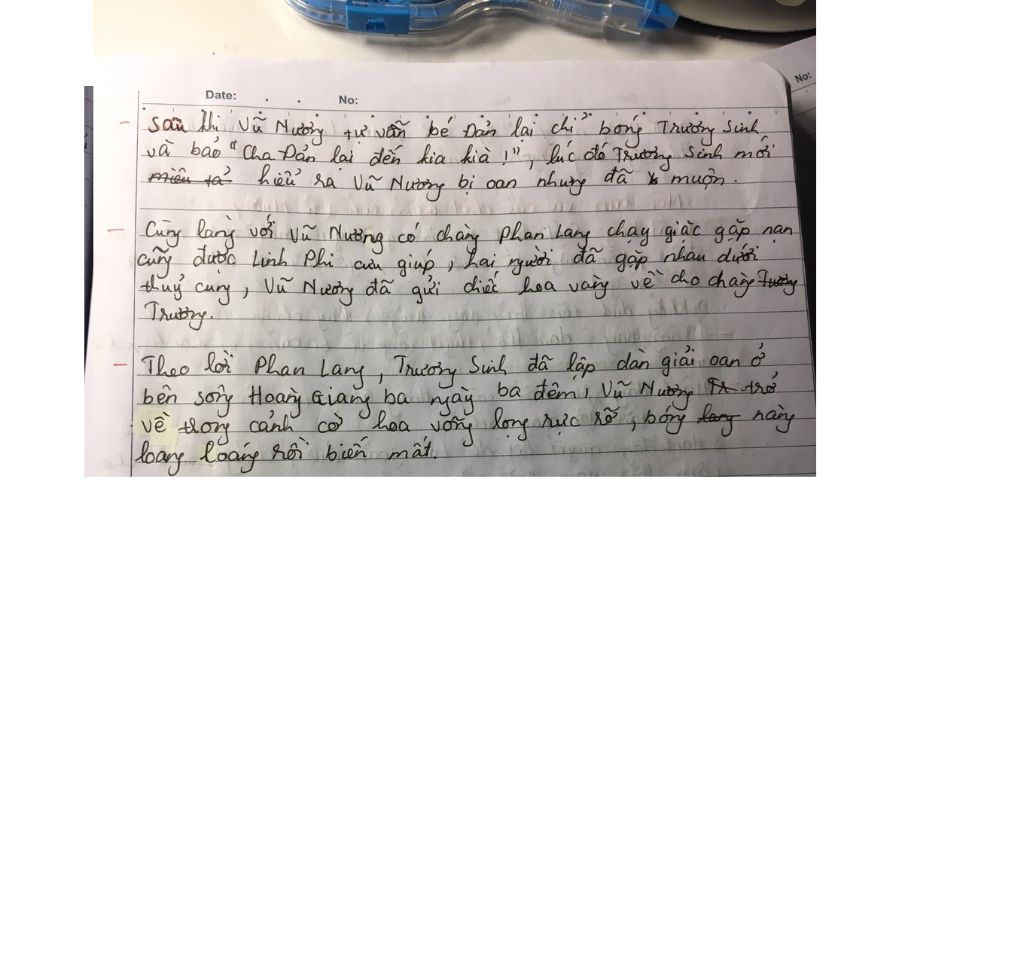 Date: . . No:
No:
- Sau khi Vũ Nương tự vẫn bé Đản lại chỉ bóng Trương Sinh
và bảo "Cha Đản lại đến kia kià !", lúc đó Trương Sinh mới
hiểu ra Vũ Nương bị oan nhưng đã muộn.
- Cùng làng với Vũ Nương có chàng Phan Lang chạy giặc gặp nạn
cũng được Linh Phi cứu giúp, hai người đã gặp nhau dưới
thuỷ cung, Vũ Nương đã gửi chiếc hoa vàng về cho chàng
Trương.
- Theo lời Phan Lang, Trương Sinh đã lập đàn giải oan ở
bến sông Hoàng Giang ba ngày ba đêm, Vũ Nương trở
về trong cảnh cờ hoa võng lọng rực rỡ, bóng nàng
loang loáng rồi biến mất.